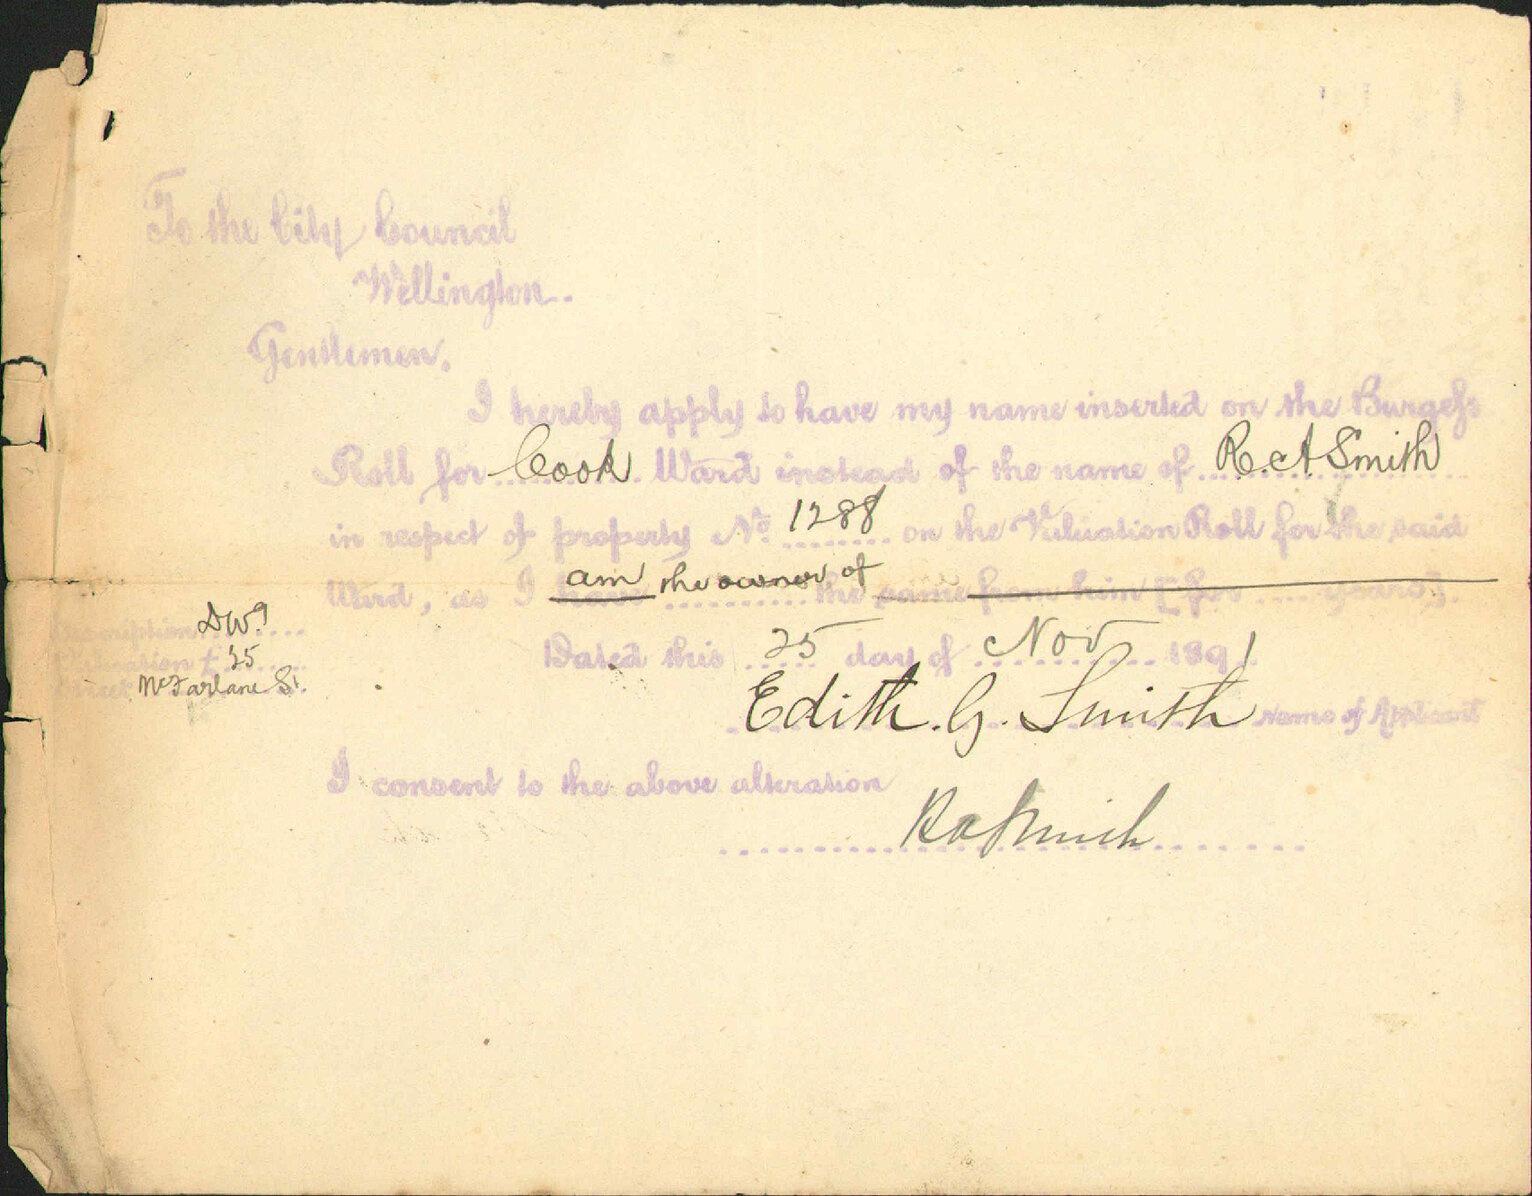 To the City Council
Wellington.
Gentlemen.
I hereby apply to have my name inserted on the Burgess
Roll for Cook Ward instead of the name of R. A Smith
in respect of property No. 1288 on the Valuation Roll for the said
am the owner of
Ward, as I have the same from him [for years].
Description DWg
Valuation £ 25
Street McFarlane St.
Dated this 25 day of Nov 1891
Edith. G. Smith Name of Applicant
I consent to the above alteration
R A Smith